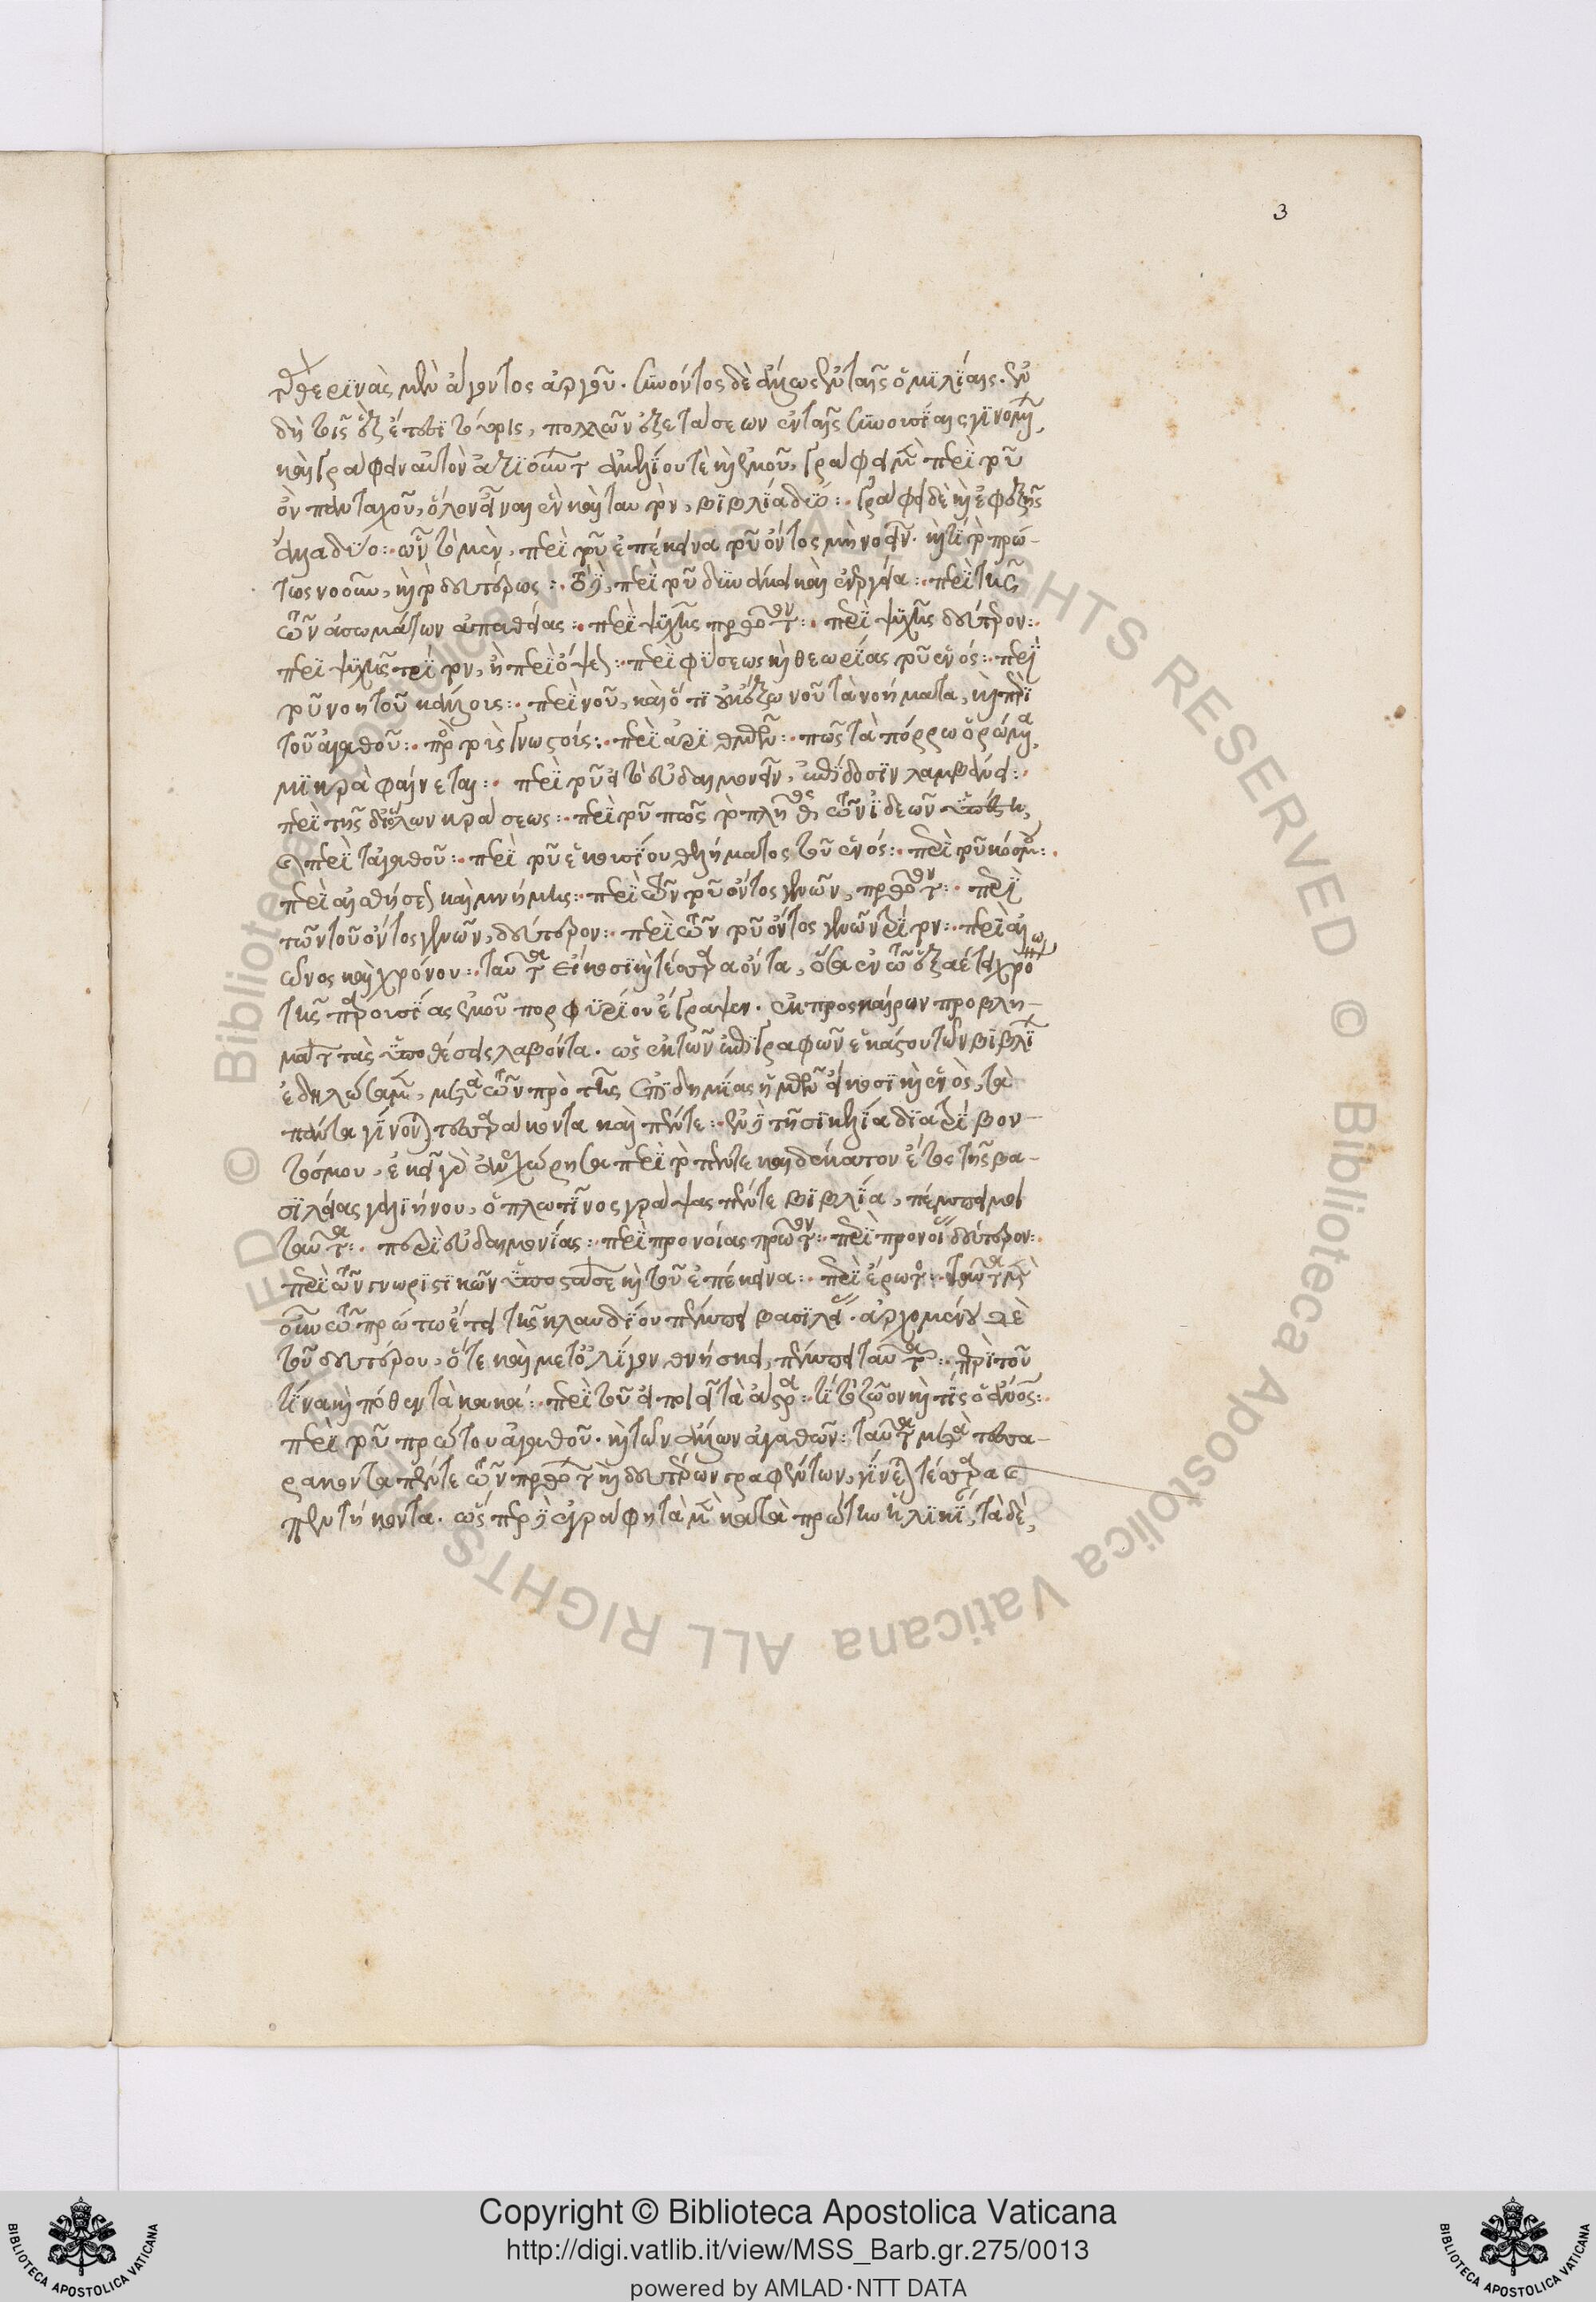 3
τὰς θερινὰς μὲν ἄγοντος ἀργούς. συνόντος δὲ ἄλλως ἐν ταῖς ὁμιλίαις. ἐν
δὴ τοῖς ἓξ ἔτεσι τούτοις, πολλῶν ἐξετάσεων ἐν ταῖς συνουσίαις γινομένων,
καὶ γράφειν αὐτὸν ἀξιούντων ἀμελίου τὲ καὶ ἐμοῦ, γράφει μὲν περὶ τοῦ
ὂν πανταχοῦ, ὅλον εἶναι ἓν καὶ ταυτὸν, βιβλία δύο: γράφει δὲ καὶ ἐφεξῆς
ἄλλα δύο: ὧν τὸ μὲν, περὶ τοῦ ἐπέκεινα τοῦ ὄντος μὴ νοεῖν. καὶ τί τὸ πρώ-
τως νοοῦν, καὶ τὸ δευτέρως: τὸ δὲ, περὶ τοῦ δυνάμει καὶ ἐνεργείᾳ: περὶ τῆς
τῶν ἀσωμάτων ἀπαθείας: περὶ ψυχῆς πρῶτον: περὶ ψυχῆς δεύτερον:
περὶ ψυχῆς τρίτον, ἢ περὶ ὄψεως: περὶ φύσεως καὶ θεωρίας τοῦ ἑνός: περὶ
τοῦ νοητοῦ κάλλους: περὶ νοῦ, καὶ ὅτι οὐκ ἔξω νοῦ τὰ νοήματα, καὶ περὶ
τοῦ ἀγαθοῦ: πρὸς τοὺς γνωστικούς: περὶ ἀριθμῶν: πῶς τὰ πόρρω ὁρώμενα
μικρὰ φαίνεται: περὶ τοῦ εἰ τὸ εὐδαιμονεῖν, ἐπίδοσιν λαμβάνει:
περὶ τῆς δι' ὅλων κράσεως: περὶ τοῦ πῶς τὸ πλῆθος τῶν ἰδεῶν
καὶ περὶ τἀγαθοῦ: περὶ τοῦ ἑκουσίου θελήματος τοῦ ἑνός: περὶ τοῦ κόσμου:
περὶ αἰσθήσεως καὶ μνήμης: περὶ τῶν τοῦ ὄντος γενῶν, πρῶτον: περὶ
τῶν τοῦ ὄντος γενῶν, δεύτερον: περὶ τῶν τοῦ ὄντος γενῶν τρίτον: περὶ αἰ
ῶνος καὶ χρόνου: ταῦτα εἴκοσι καὶ τέσσαρα ὄντα, ὅσα ἐν τῷ ἑξαέτει χρόνῳ
τῆς παρουσίας ἐμοῦ πορφυρίου ἔγραψεν. ἐκ προσκαίρων προβλη-
μάτων τὰς ὑποθέσεις λαβόντα. ὡς ἐκ τῶν ἐπιγραφῶν ἑκάστου τῶν βιβλίων
ἐδηλώσαμεν, μετὰ τῶν πρὸ τῆς ἐπιδημίας ἡμῶν εἴκοσι καὶ ἑνὸς, τὰ
πάντα γίνονται τεσσαράκοντα καὶ πέντε: ἐν δὲ τῇ σικελίᾳ διατρίβον-
τός μου, ἐκεῖ γὰρ ἀνεχώρησα περὶ τὸ πέντε καὶ δέκατον ἔτος τῆς βα-
σιλείας γαλιήνου, ὁ πλωτῖνος γράψας πέντε βιβλία, πέμπει μοι
ταῦτα: περὶ εὐδαιμονίας: περὶ προνοίας πρῶτον: περὶ προνοίας δεύτερον:
περὶ τῶν γνωριστικῶν ὑποστάσεων καὶ τοῦ ἐπέκεινα: περὶ ἔρωτος: ταῦτα μὲν
οὖν τῷ πρώτῳ ἔτει τῆς κλαυδίου πέμπει βασιλείας. ἀρχομένου δὲ
τοῦ δευτέρου, ὅτε καὶ μετ' ὀλίγον θνήσκει, πέμπει ταῦτα: περὶ τοῦ
τίνα καὶ πόθεν τὰ κακά: περὶ τοῦ εἰ ποιεῖ τὰ ἄστρα: τί τὸ ζῶον καὶ τίς ὁ ἄνθρωπος:
περὶ τοῦ πρώτου ἀγαθοῦ. καὶ τῶν ἄλλων ἀγαθῶν: ταῦτα μετὰ τεσσα-
ράκοντα πέντε τῶν πρώτων καὶ δευτέρων γραφέντων, γίνεται τέσσαρα καὶ
πεντήκοντα. ὥσπερ δὲ ἐγράφη τὰ μὲν κατὰ πρώτην ἡλικίαν, τὰ δὲ,
Copyright © Biblioteca Apostolica Vaticana
http://digi.vatlib.it/view/MSS_Barb.gr.275/0013
powered by AMLAD·NTT DATA